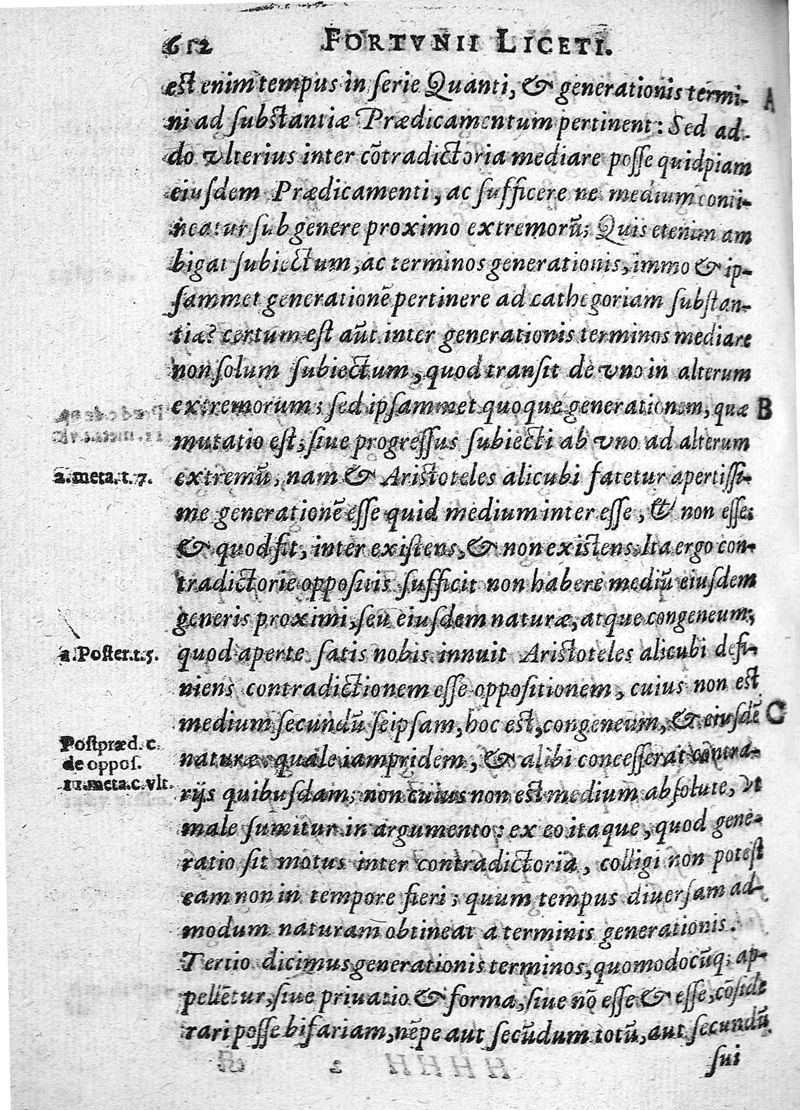 612 FORTVNII LICETI.
est enim tempus in serie Quanti, & generationis termi- A
ni ad substantiæ Prædicamentum pertinent: Sed ad-
do vlterius inter cõtradictoria mediare posse quidpiam
eiusdem Prædicamenti, ac sufficere ne medium conti-
neatur sub genere proximo extremorũ; Quis etenim am
bigat subiectum, ac terminos generationis, immo & ip-
sammet generationẽ pertinere ad cathegoriam substan-
tiæ? certum est aũt inter generationis terminos mediare
non solum subiectum, quod transit de vno in alterum
extremorum; sed ipsammet quoque generationem, quæ B
mutatio est, siue progressus subiecti ab vno ad alterum
2.meta.t.7. extremũ, nam & Aristoteles alicubi fatetur apertissi-
me generationẽ esse quid medium inter esse, & non esse;
& quod fit, inter existens, & non existens. Ita ergo con-
tradictorie oppositis sufficit non habere mediũ eiusdem
generis proximi, seu eiusdem naturæ, atque congeneum;
2.Poster.t.5. quod aperte satis nobis innuit Aristoteles alicubi defi-
niens contradictionem esse oppositionem, cuius non est
medium secundũ seipsam, hoc est, congeneum, & eiusdẽ C
Postpræd.c.
de oppos.
11.meta.c.vlt.
naturæ: quale iampridem, & alibi concesserat contra-
rijs quibusdam; non cuius non est medium absolute, vt
male sumitur in argumento: ex eo itaque, quod gene-
ratio sit motus inter contradictoria, colligi non potest
eam non in tempore fieri; quum tempus diuersam ad-
modum naturam obtineat a terminis generationis.
Tertio dicimus generationis terminos, quomodocũq; ap-
pellẽtur, siue priuatio & forma, siue nõ esse & esse, cõside
rari posse bifariam, nẽpe aut secũdum totũ, aut secundũ
sui